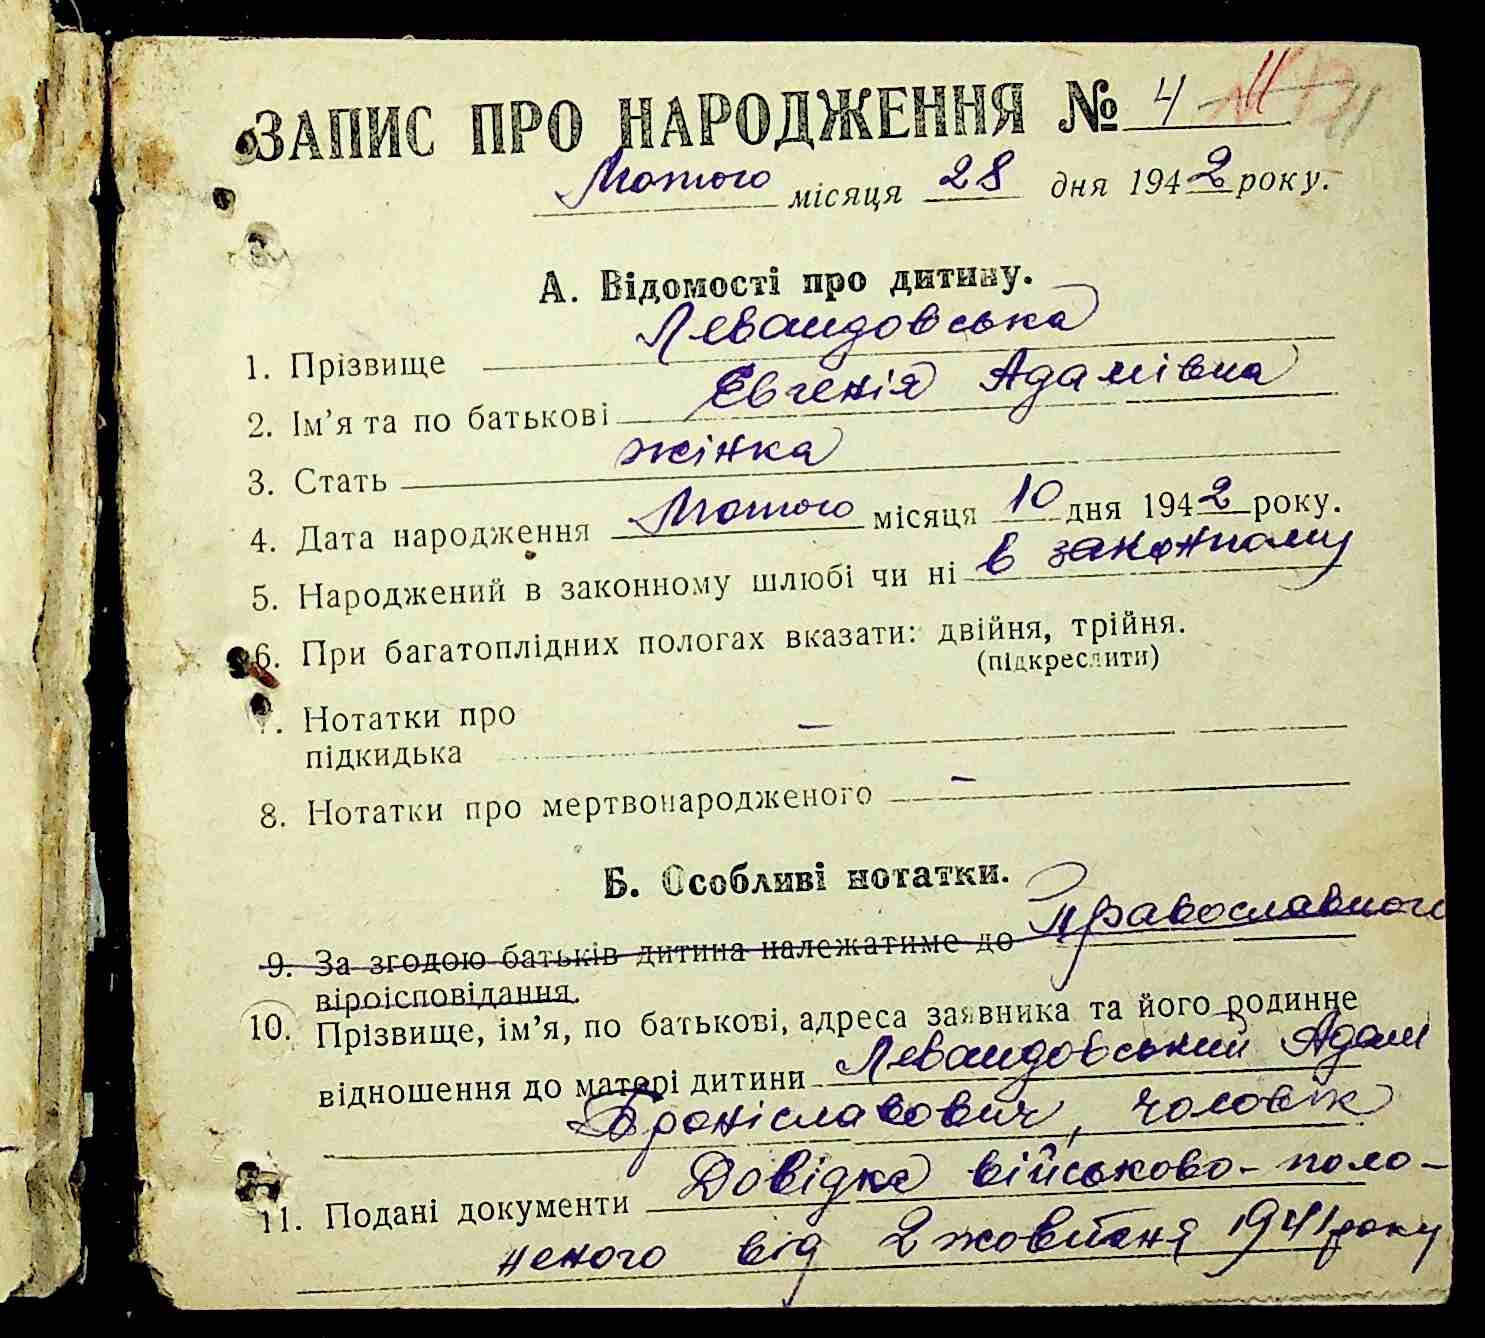 ЗАПИС ПРО НАРОДЖЕННЯ № 4
Лютого місяця 28 дня 1942 року.
А. Відомості про дитину.
1. Прізвище Левандовська
2. Ім’я та по батькові Євгенія Адамівна
3. Стать жінка
4. Дата народження Лютого місяця 10 дня 1942 року.
5. Народжений в законному шлюбі чи ні в законному
6. При багатоплідних пологах вказати: двійня, трійня.
(підкреслити)
7. Нотатки про
підкидька —
8. Нотатки про мертвонародженого —
Б. Особливі нотатки.
9. За згодою батьків дитина належатиме до Православного
віроісповідання.
10. Прізвище, ім’я, по батькові, адреса заявника та його родинне
відношення до матері дитини Левандовський Адам
Броніславович, чоловік
11. Подані документи Довідка військово-поло-
неного від 2 жовтня 1941 року